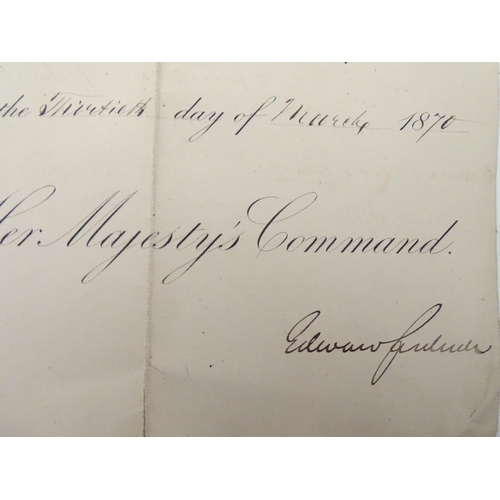 the Thirtieth day of March 1870
Her Majesty's Command.
Edward